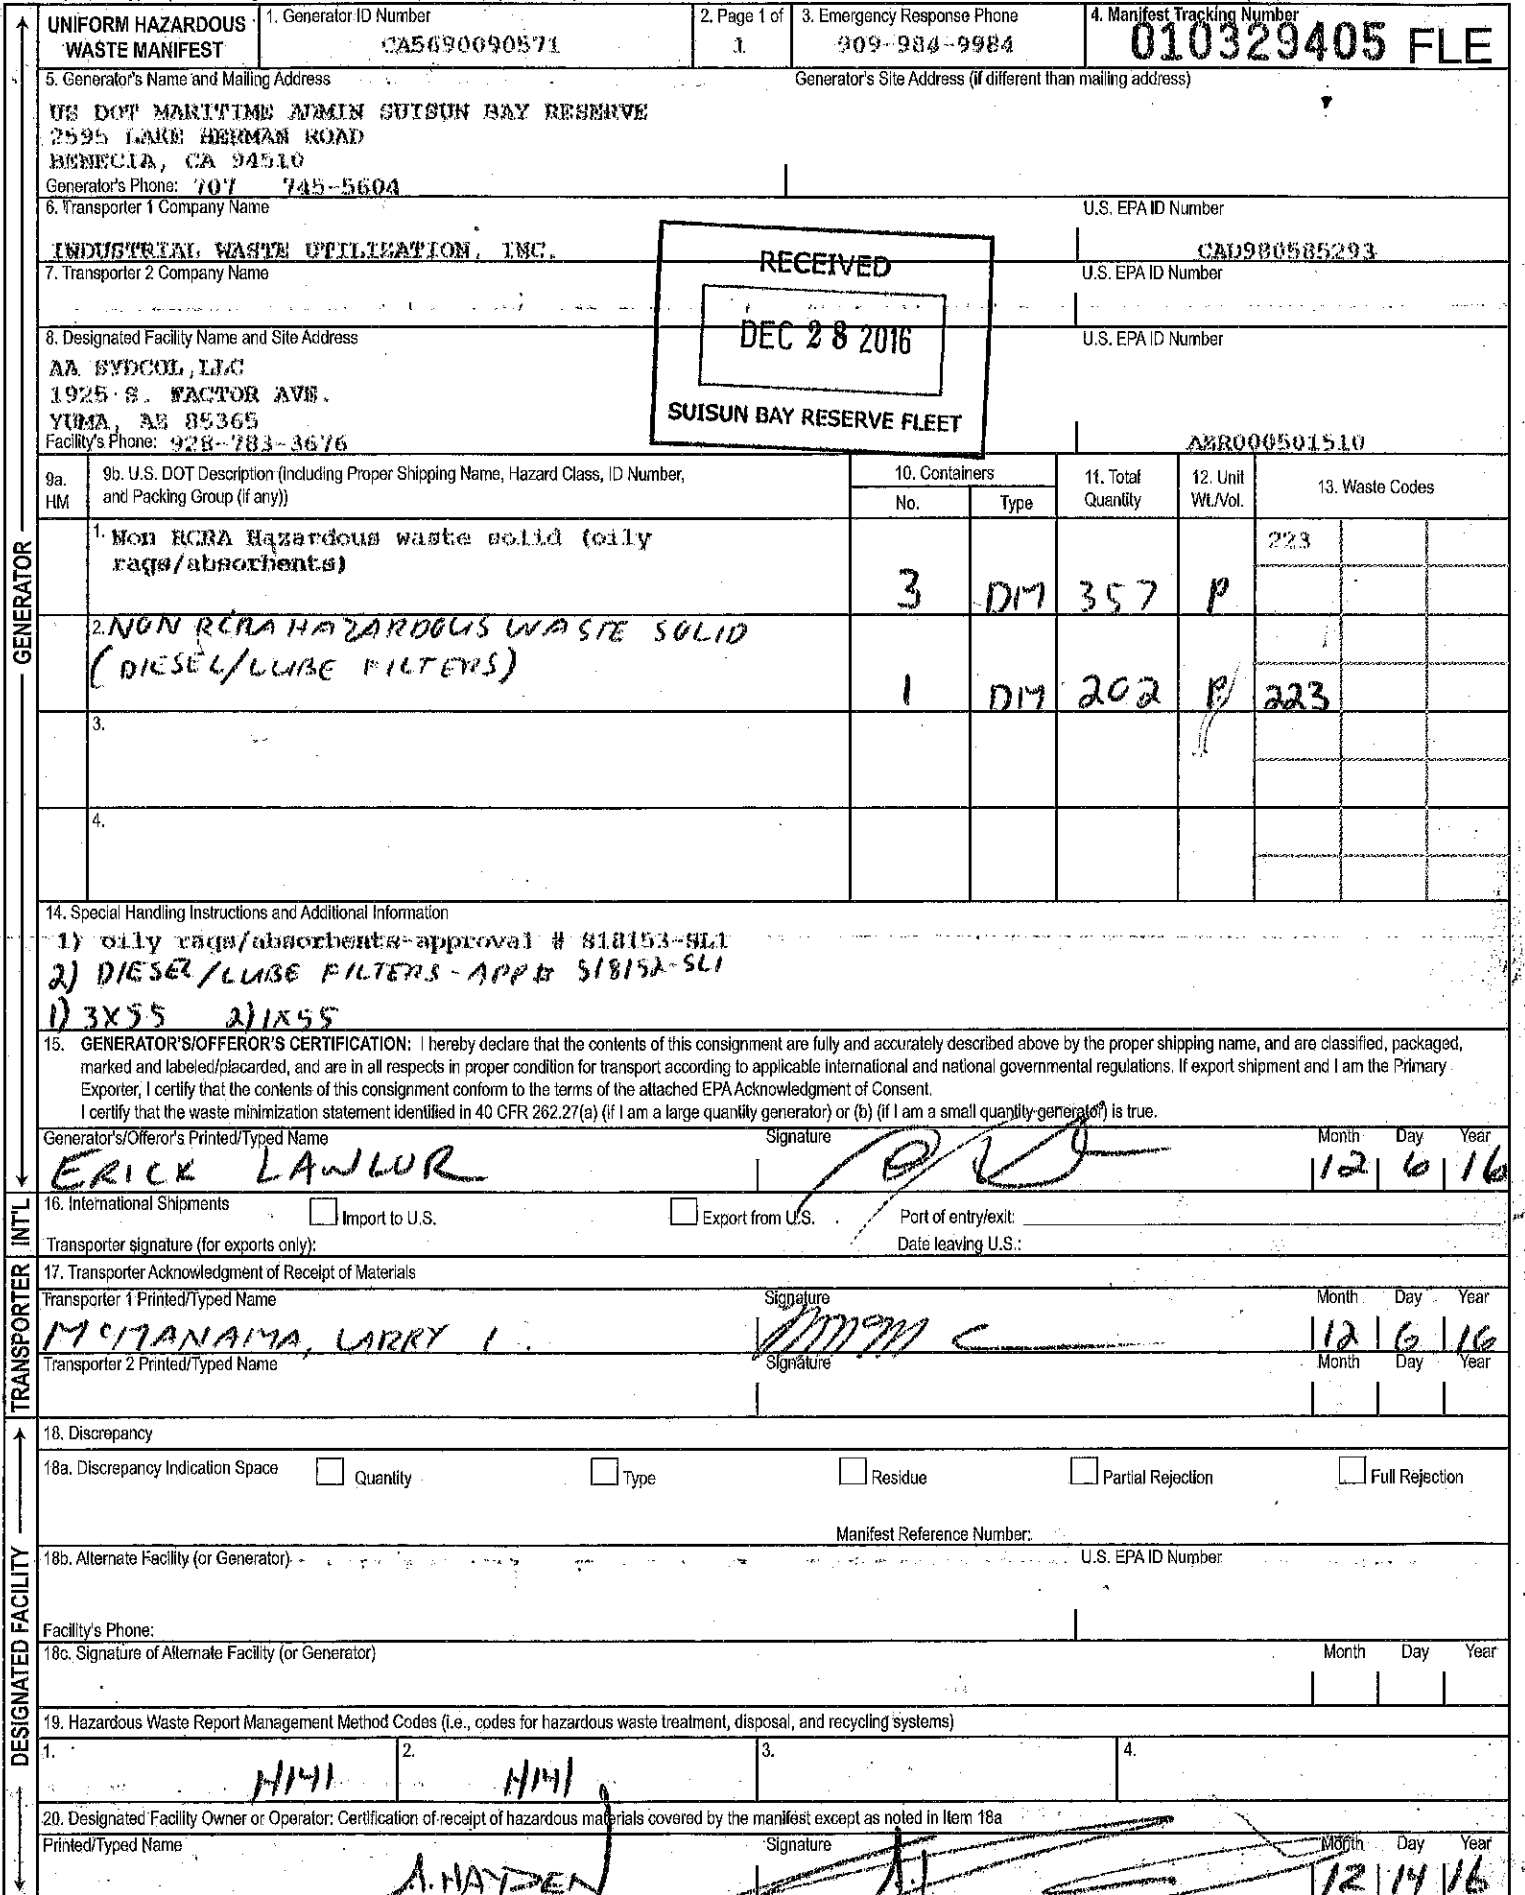 UNIFORM HAZARDOUS WASTE MANIFEST
1. Generator ID Number
CA5690090571
2. Page 1 of
1
3. Emergency Response Phone
909-984-9984
4. Manifest Tracking Number
010329405 FLE
5. Generator's Name and Mailing Address
Generator's Site Address (if different than mailing address)
US DOT MARITIME ADMIN SUISUN BAY RESERVE
2595 LAKE HERMAN ROAD
BENECIA, CA 94510
Generator's Phone: 707 745-5604
6. Transporter 1 Company Name
U.S. EPA ID Number
INDUSTRIAL WASTE UTILIZATION, INC.
CAD980585293
7. Transporter 2 Company Name
U.S. EPA ID Number
RECEIVED
DEC 28 2016
SUISUN BAY RESERVE FLEET
8. Designated Facility Name and Site Address
U.S. EPA ID Number
AA SYDCOL,LLC
1925 S. FACTOR AVE.
YUMA, AZ 85365
Facility's Phone: 928-783-3676
AZR000501510
9a. HM
9b. U.S. DOT Description (including Proper Shipping Name, Hazard Class, ID Number, and Packing Group (if any))
10. Containers
No.
Type
11. Total Quantity
12. Unit Wt./Vol.
13. Waste Codes
1. Non RCRA Hazardous waste solid (oily
rags/absorbents)
3 DM 357 P
223
2. NON RCRA HAZARDOUS WASTE SOLID
(DIESEL/LUBE FILTERS)
1 DM 202 P 223
3.
4.
14. Special Handling Instructions and Additional Information
1) oily rags/absorbents-approval # S18153-SL1
2) DIESEL/LUBE FILTERS - APP# S18152-SL1
1) 3X55 2) 1X55
15. GENERATOR'S/OFFEROR'S CERTIFICATION: I hereby declare that the contents of this consignment are fully and accurately described above by the proper shipping name, and are classified, packaged,
marked and labeled/placarded, and are in all respects in proper condition for transport according to applicable international and national governmental regulations. If export shipment and I am the Primary
Exporter, I certify that the contents of this consignment conform to the terms of the attached EPA Acknowledgment of Consent.
I certify that the waste minimization statement identified in 40 CFR 262.27(a) (if I am a large quantity generator) or (b) (if I am a small quantity generator) is true.
Generator's/Offeror's Printed/Typed Name
Signature
Month Day Year
ERICK LAWLOR
12 6 16
16. International Shipments
Import to U.S.
Export from U.S.
Port of entry/exit:
Transporter signature (for exports only):
Date leaving U.S.:
17. Transporter Acknowledgment of Receipt of Materials
Transporter 1 Printed/Typed Name
Signature
Month Day Year
McMANAMA, LARRY L.
12 6 16
Transporter 2 Printed/Typed Name
Signature
Month Day Year
18. Discrepancy
18a. Discrepancy Indication Space
Quantity
Type
Residue
Partial Rejection
Full Rejection
Manifest Reference Number:
18b. Alternate Facility (or Generator)
U.S. EPA ID Number
Facility's Phone:
18c. Signature of Alternate Facility (or Generator)
Month Day Year
19. Hazardous Waste Report Management Method Codes (i.e., codes for hazardous waste treatment, disposal, and recycling systems)
1. H141
2. H141
3.
4.
20. Designated Facility Owner or Operator: Certification of receipt of hazardous materials covered by the manifest except as noted in Item 18a
Printed/Typed Name
Signature
Month Day Year
A. HAYDEN
12 14 16
GENERATOR
INT'L
TRANSPORTER
DESIGNATED FACILITY